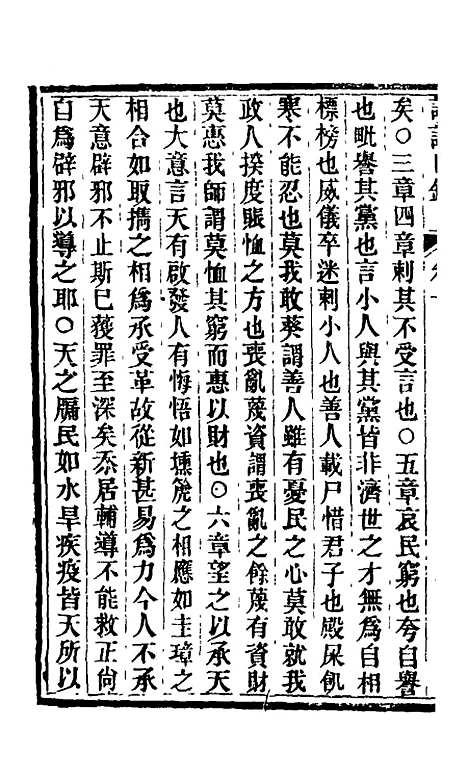 矣○三章四章刺其不受言也○五章哀民窮也夸自譽
也毗譽其黨也言小人與其黨皆非濟世之才無爲自相
標榜也威儀卒迷刺小人也善人載尸惜君子也殿屎飢
寒不能忍也莫我敢葵謂善人雖有憂民之心莫敢就我
政人揆度賑恤之方也喪亂蔑資謂喪亂之餘蔑有資財
莫惠我師謂莫恤其窮而惠以財也○六章望之以承天
也大意言天有啟發人有悔悟如壎篪之相應如圭璋之
相合如取攜之相爲承受革故從新甚易爲力今人不承
天意辟邪不止斯巳獲罪至深矣忝居輔導不能救正尙
自爲辟邪以導之耶○天之牖民如水旱疾疫皆天所以